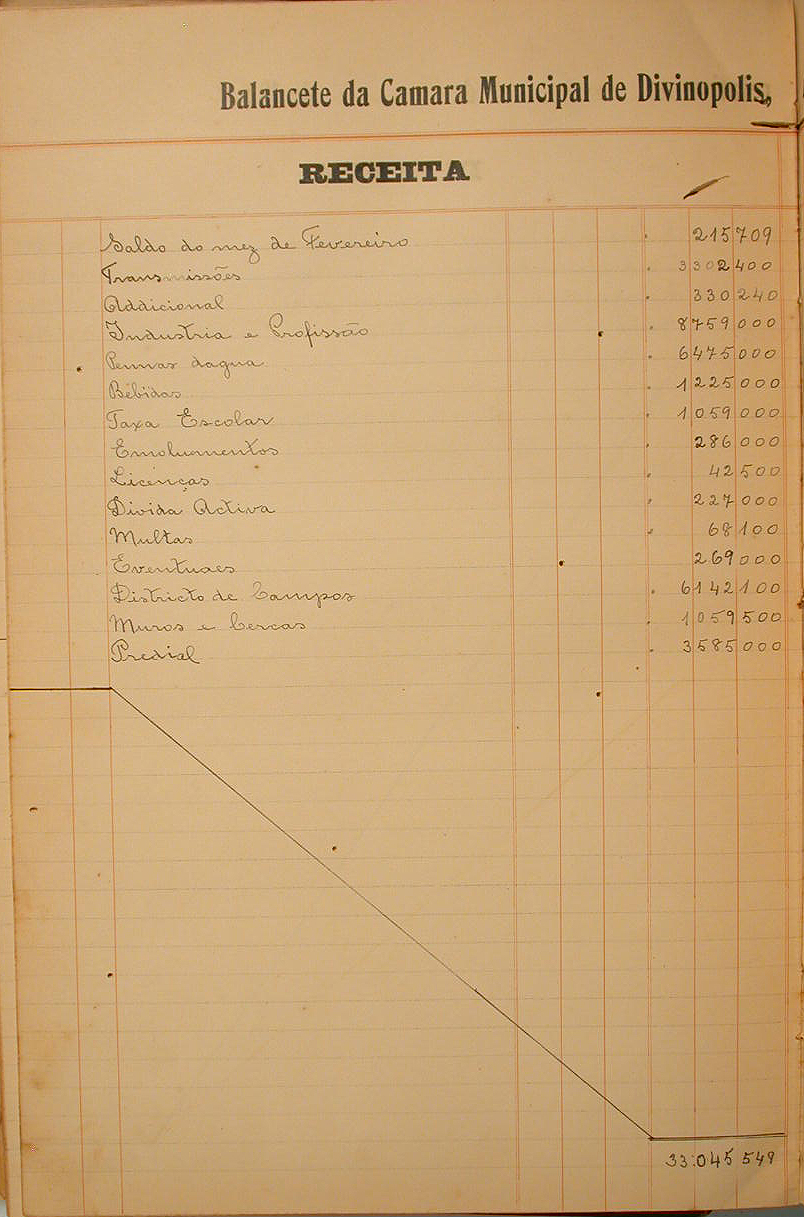 Balancete da Camara Municipal de Divinopolis,
RECEITA
Saldo do mez de Fevereiro 215 709
Transmissões 3 302 400
Addicional 330 240
Industria e Profissão 8 759 000
Pennas dagua 6 475 000
Bebidas 1 225 000
Taxa Escolar 1 059 000
Emolumentos 286 000
Licenças 42 500
Divida Activa 227 000
Multas 68 100
Eventuaes 269 000
Districto de Campos 6 142 100
Muros e Cercas 1 059 500
Predial 3 585 000
33:045 549